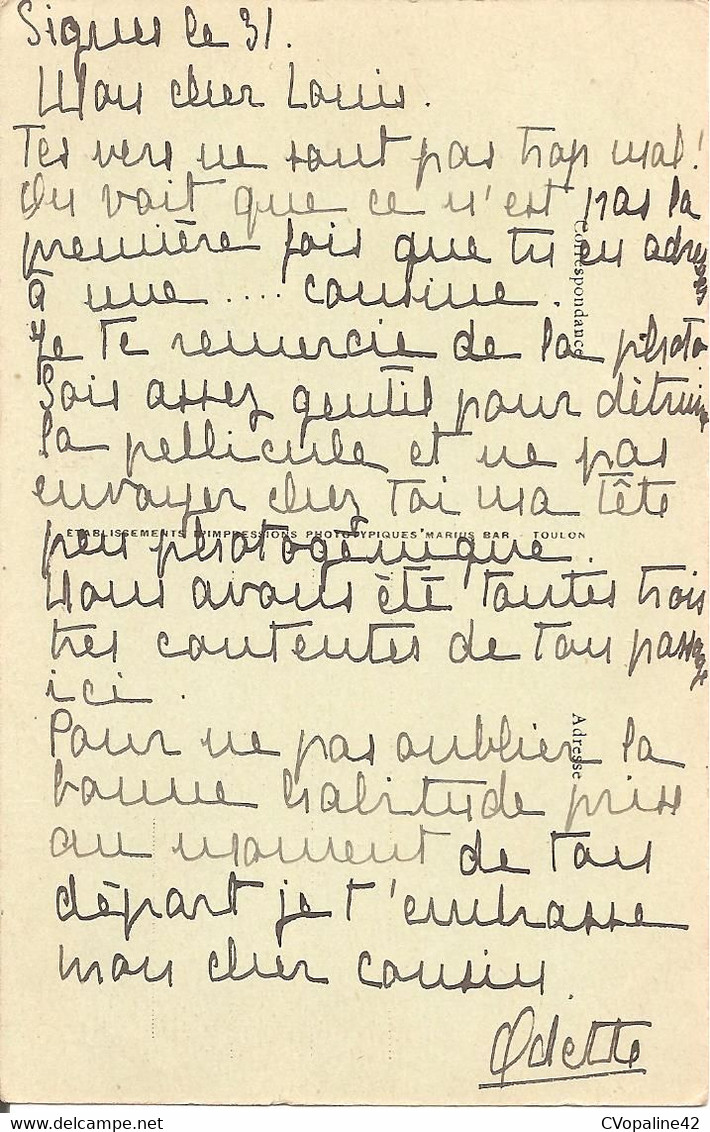 Signes le 31.
Mon cher Louis.
Tes vers ne sont pas trop mal!
On voit que ce n'est pas la
première fois que tu en adresses
à une .... cousine.
Je te remercie de la photo.
Sois assez gentil pour détruire
la pellicule et ne pas
envoyer chez toi ma tête
peu photogénique.
Nous avons été toutes trois
très contentes de ton passage
ici.
Pour ne pas oublier la
bonne habitude prise
au moment de ton
départ je t'embrasse
mon cher cousin.
Odette
Correspondance
ÉTABLISSEMENTS D'IMPRESSIONS PHOTOTYPIQUES MARIUS BAR - TOULON
Adresse
CVopaline42